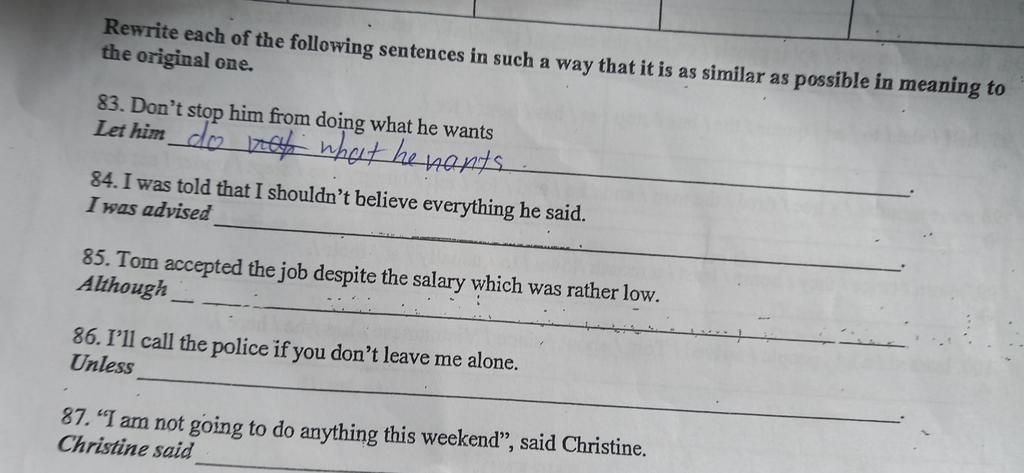 Rewrite each of the following sentences in such a way that it is as similar as possible in meaning to
the original one.
83. Don't stop him from doing what he wants
Let him do what he wants.
84. I was told that I shouldn't believe everything he said.
I was advised
85. Tom accepted the job despite the salary which was rather low.
Although
86. I'll call the police if you don't leave me alone.
Unless
87. “I am not going to do anything this weekend”, said Christine.
Christine said